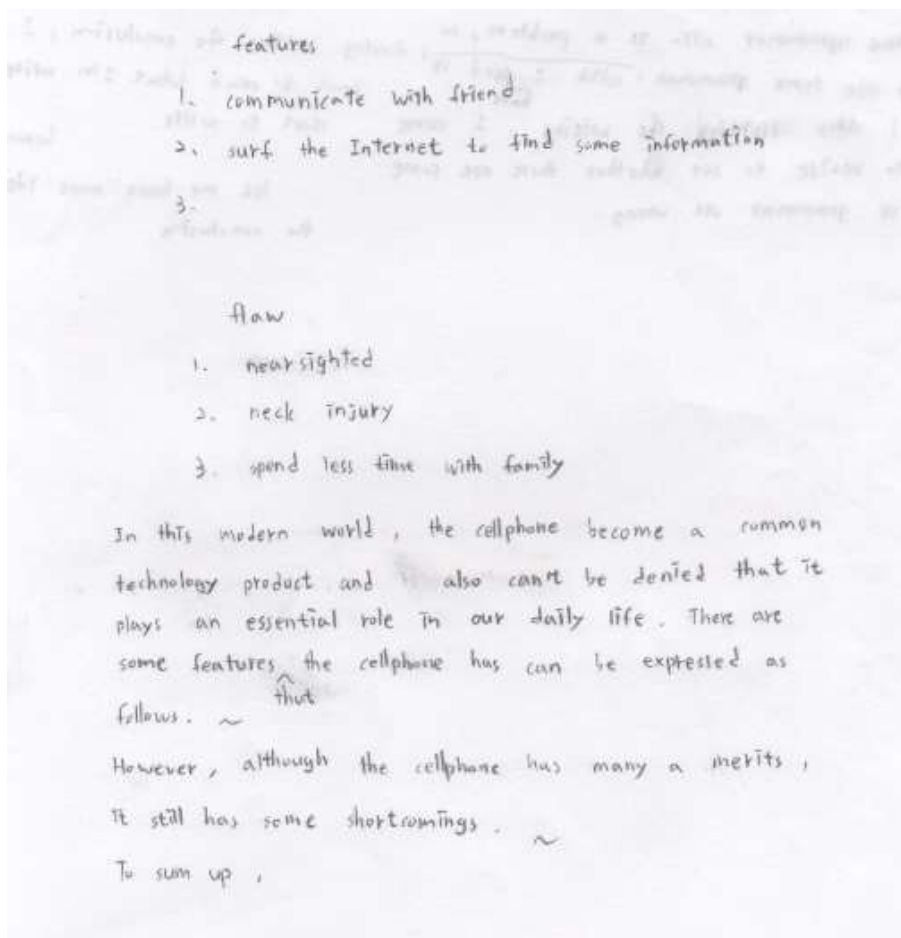 features
1. communicate with friend
2. surf the Internet to find some information
3.
flaw
1. nearsighted
2. neck injury
3. spend less time with family
In this modern world, the cellphone become a common
technology product and also can't be denied that it
plays an essential role in our daily life. There are
some features that the cellphone has can be expressed as
follows. ~
However, although the cellphone has many a merits,
it still has some shortcomings. ~
To sum up,